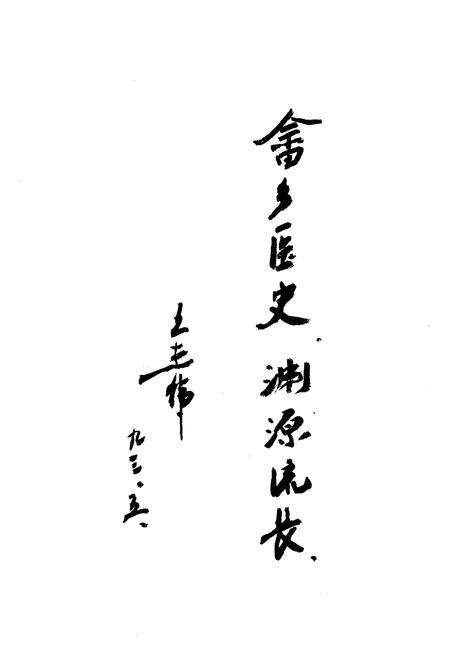 畲乡医史、渊源流长、
王志伟
九三、五、